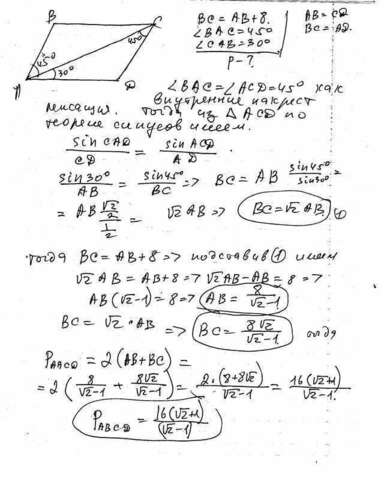 B C
A D
45° 30° 45°
BC = AB + 8.
∠BAC = 45°
∠CAB = 30°
P - ?
AB = CD
BC = AD.
∠BAC = ∠ACD = 45° как
внутренние накрест
лежащия. Тогда из △ACD по
теореме синусов имеем.
sin CAD / CD = sin ACD / AD
sin 30° / AB = sin 45° / BC => BC = AB sin 45° / sin 30° =
= AB (√2/2) / (1/2) = √2 AB => BC = √2 AB, (1)
тогда BC = AB + 8 => подставив (1) имеем
√2 AB = AB + 8 => √2 AB - AB = 8 =>
AB (√2 - 1) = 8 => AB = 8 / (√2 - 1)
BC = √2 · AB => BC = 8√2 / (√2 - 1) тогда
P = 2 (AB + BC) =
= 2 (8 / (√2 - 1) + 8√2 / (√2 - 1)) = 2 · (8 + 8√2) / (√2 - 1) = 16 (√2 + 1) / (√2 - 1)
P ABCD = 16 (√2 + 1) / (√2 - 1)